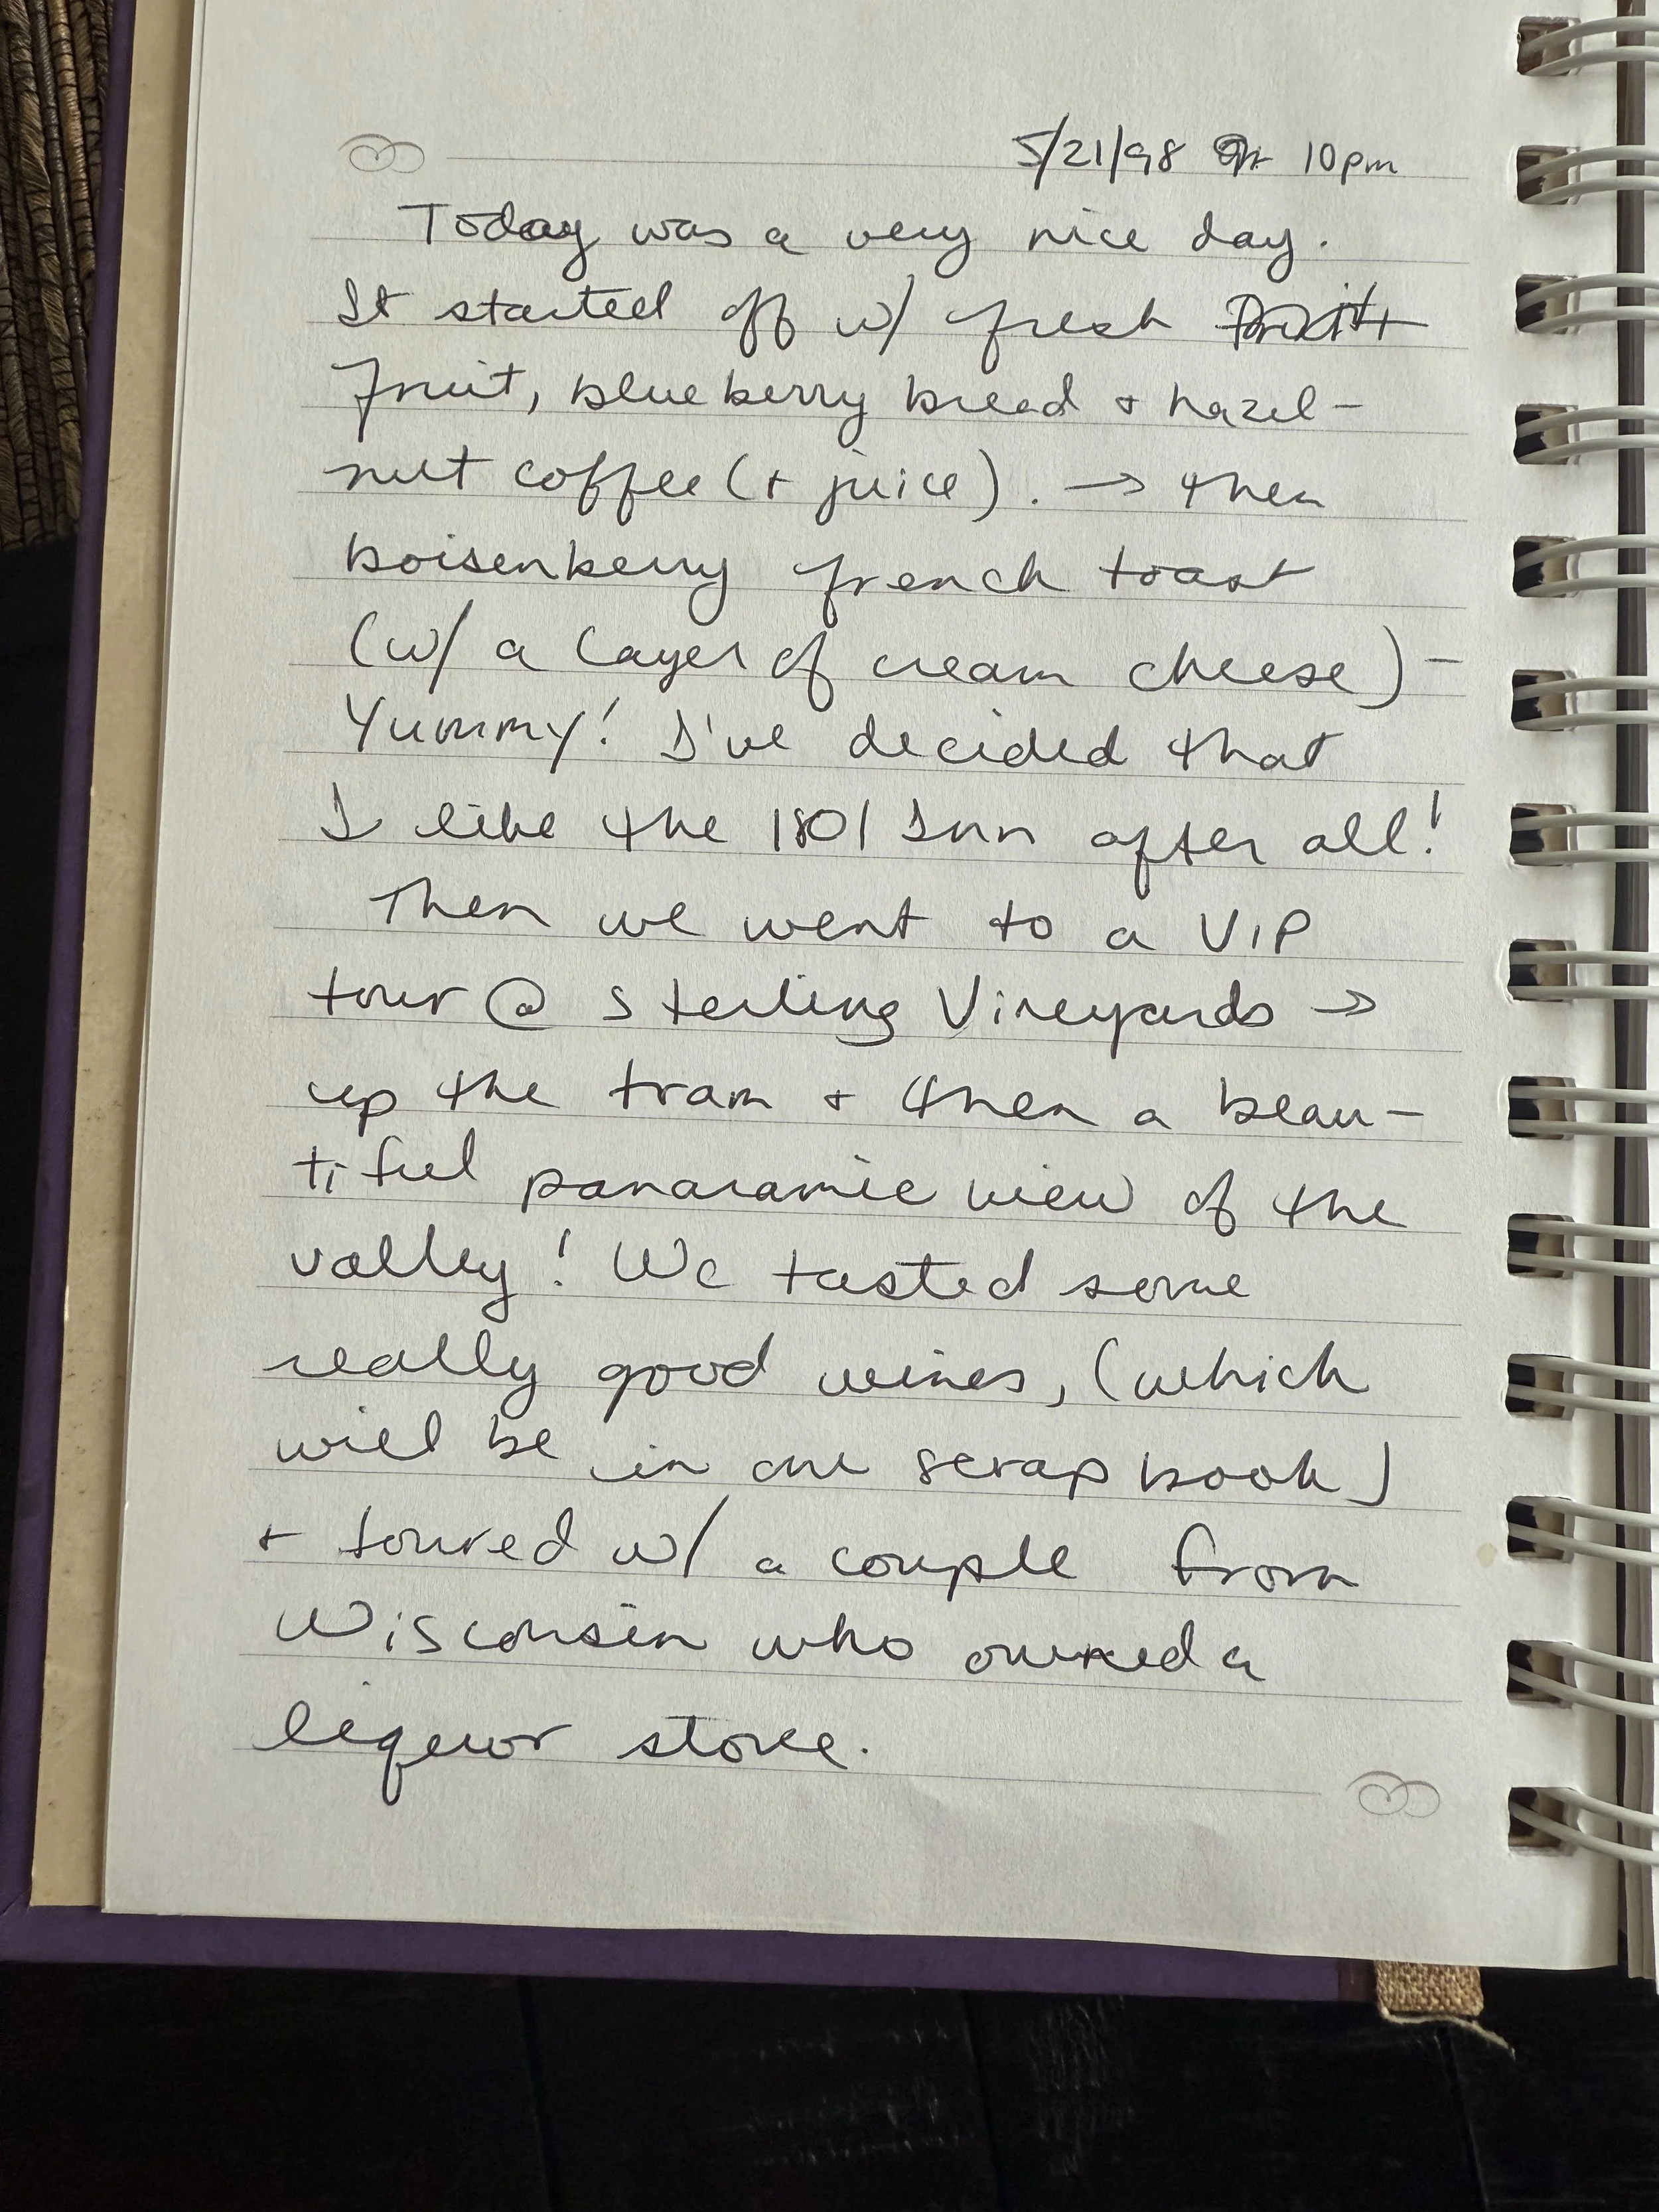 5/21/98 10pm
Today was a very nice day.
It started off w/ fresh
fruit, blueberry bread + hazel-
nut coffee (+ juice). → then
boisenberry french toast
(w/ a layer of cream cheese) -
Yummy! I've decided that
I like the 1801 Inn after all!
Then we went to a VIP
tour @ Sterling Vineyards →
up the tram + then a beau-
tiful panaramic view of the
valley! We tasted some
really good wines, (which
will be in our scrapbook)
+ toured w/ a couple from
Wisconsin who owned a
liquor store.